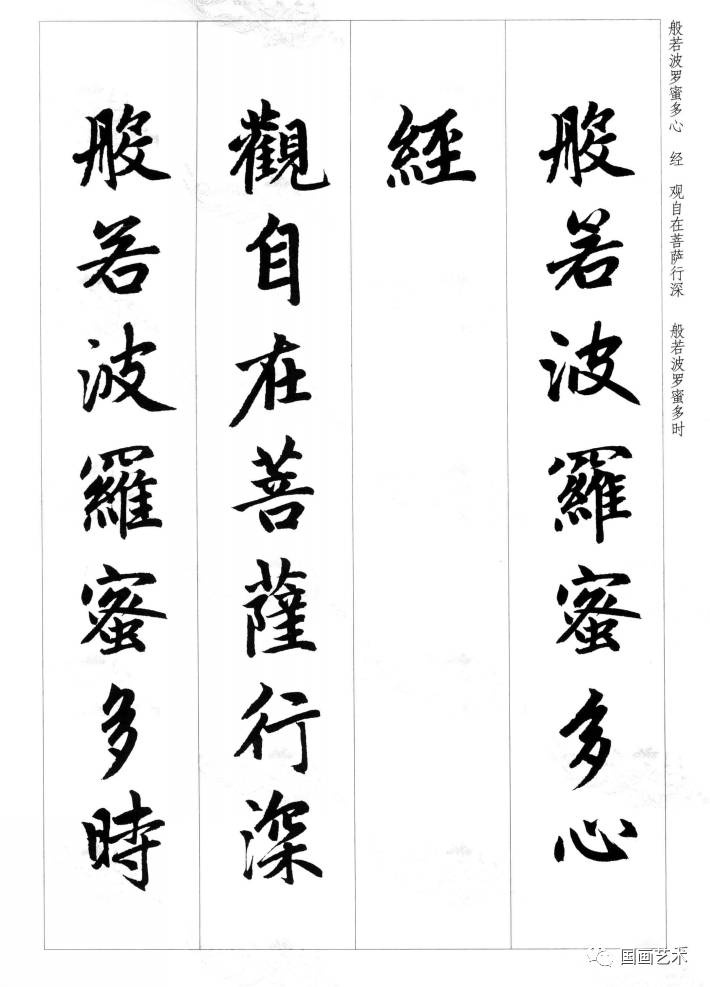 般若波罗蜜多心　经　观自在菩萨行深　般若波罗蜜多时
般若波羅蜜多心
經
觀自在菩薩行深
般若波羅蜜多時
国画艺术